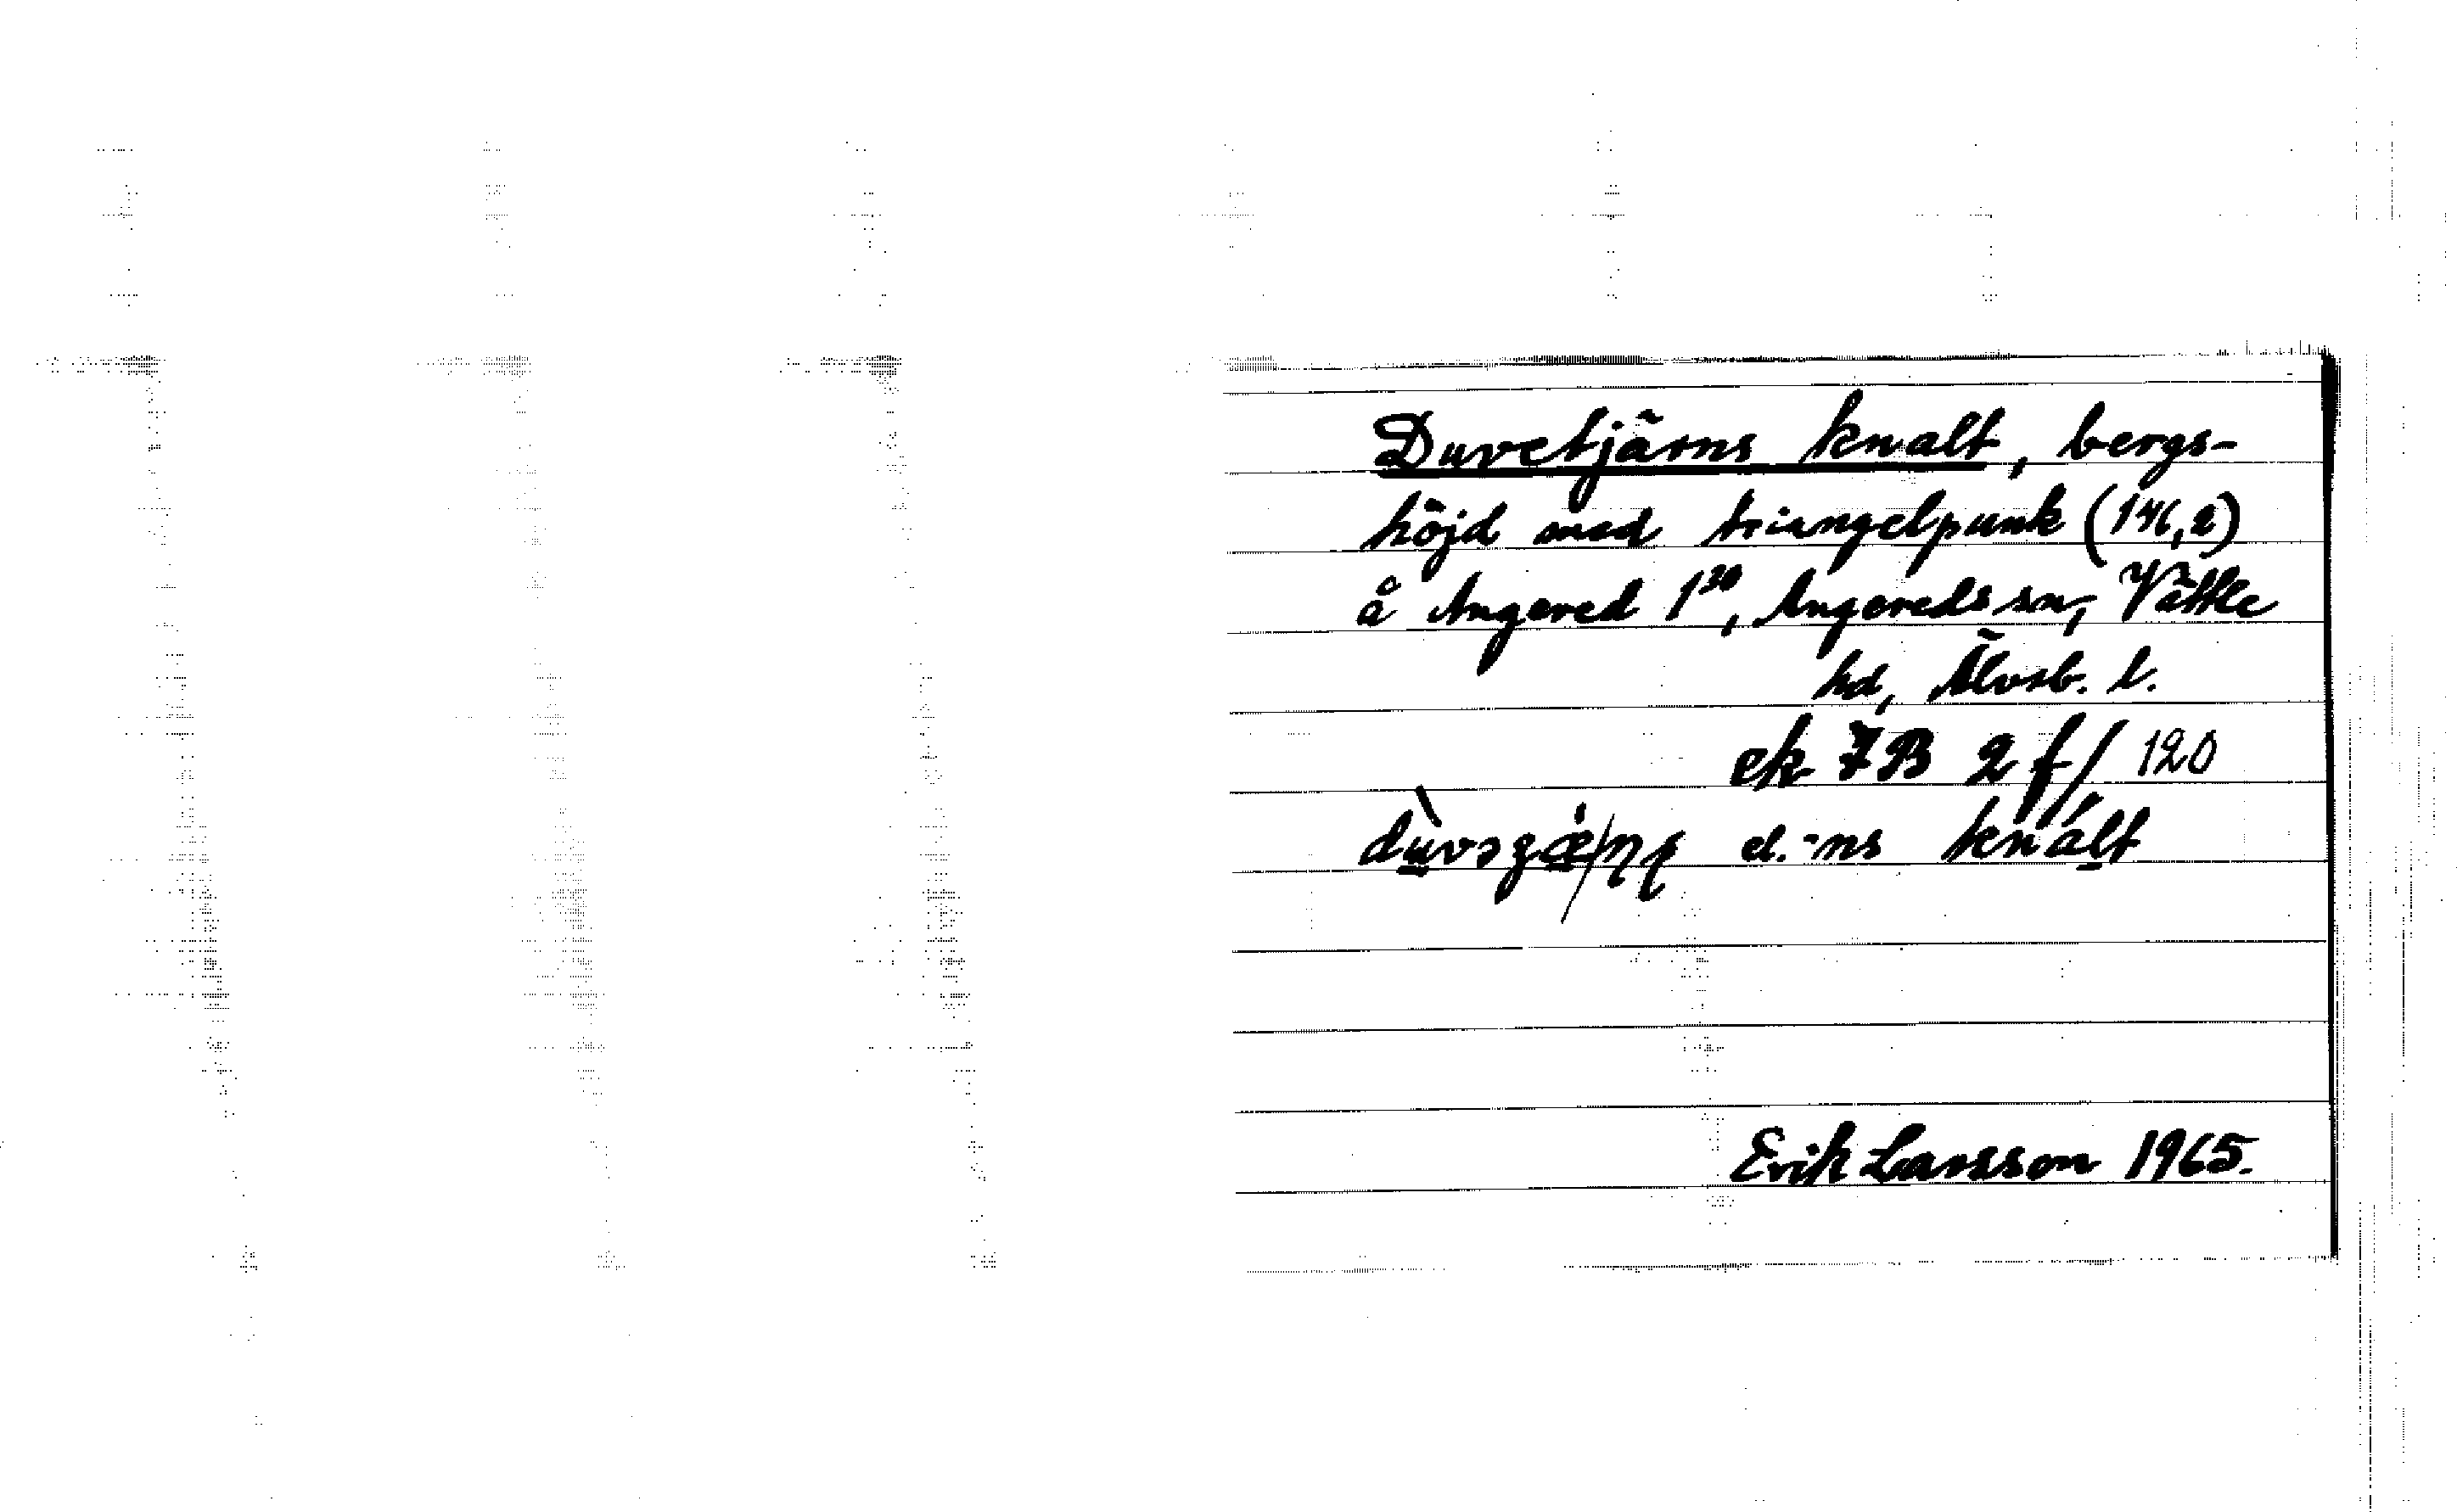 Duvetjärns knalt, bergs-
höjd med triangelpunk (146,2)
å Angered 1²⁰, Angereds sn, Vättle
hd, Älvsb. l.
ek 7B 2 f/ 120
el. -ns knált
Erik Larsson 1965.